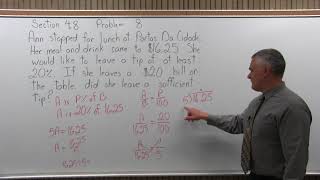 Section 4.8 Problem 8
Ann stopped for lunch at Portas Da Cidade.
Her meal and drink came to $16.25. She
would like to leave a tip of at least
20%. If she leaves a $20 bill on
the table did she leave a sufficient
tip?
A is P% of B
A is 20% of 16.25
5A = 16.25
A = 16.25
A/B = P/100
A/16.25 = 20/100
A/16.25 = 1/5
5)16.25